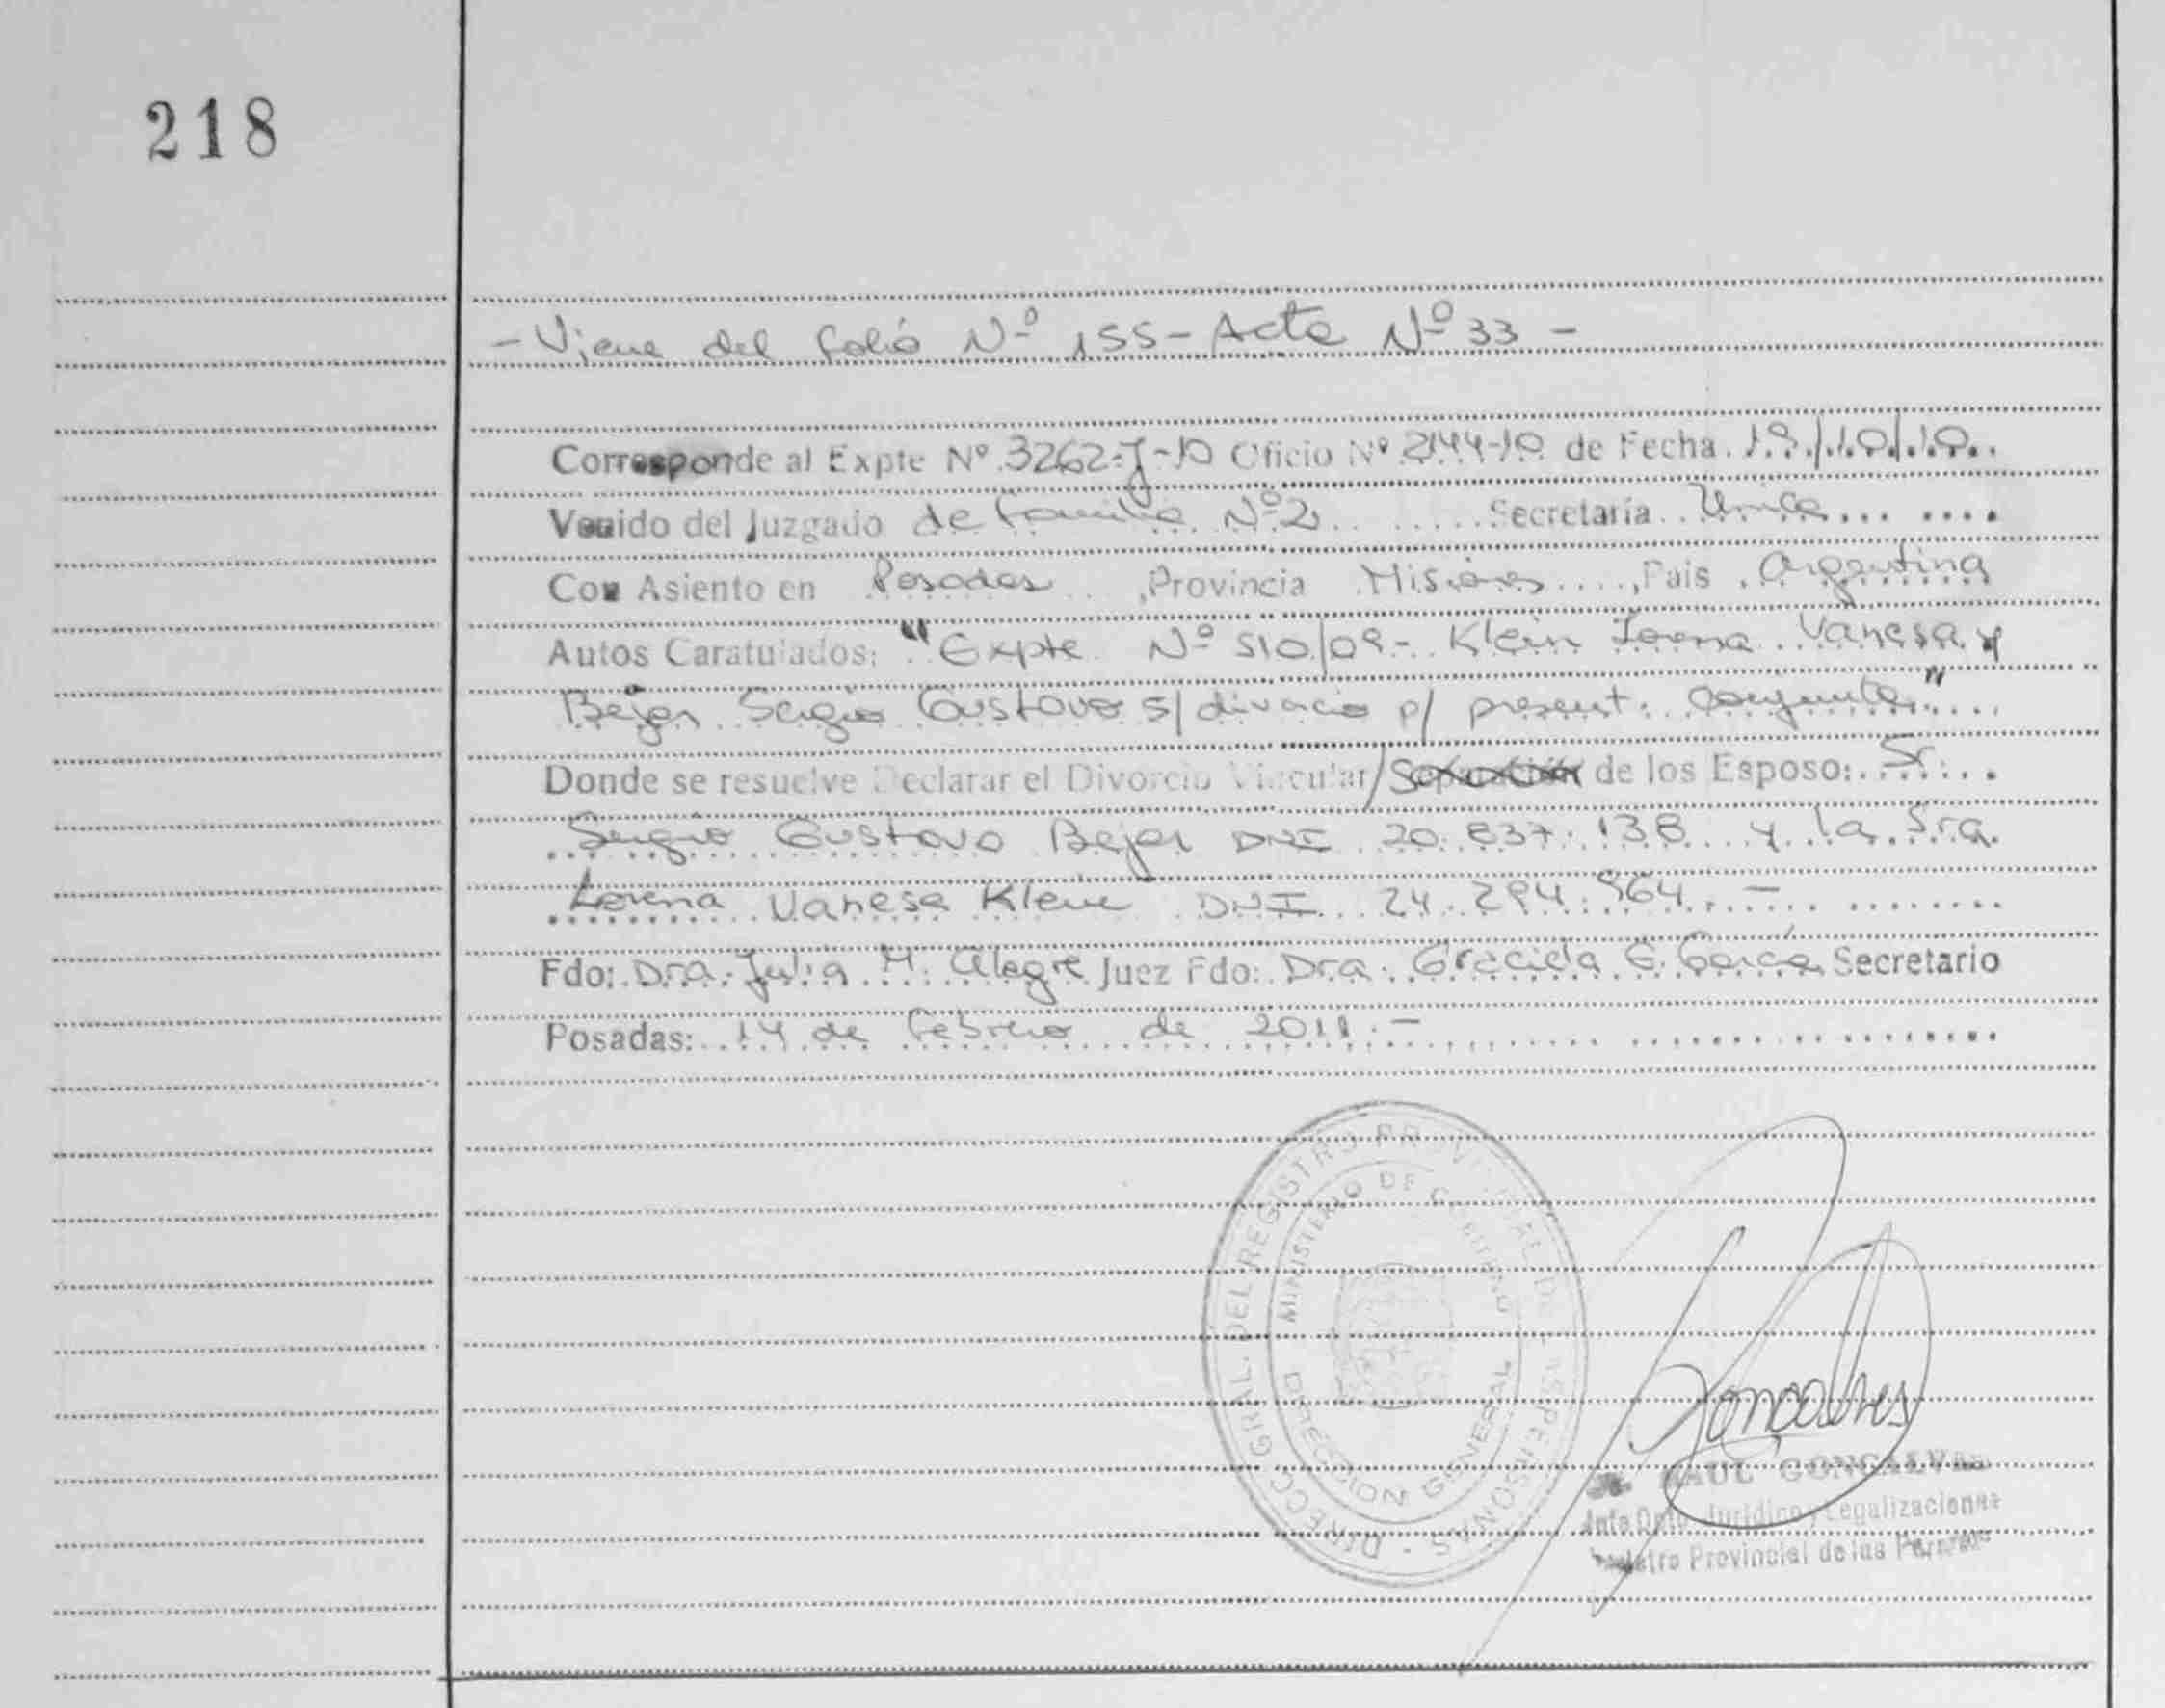 218
- Viene del folio Nº 155 - Acta Nº 33 -
Corresponde al Expte Nº 3262-J-10 Oficio Nº 2144-10 de Fecha 19/10/10
Venido del Juzgado de familia Nº 2 Secretaría Unica
Con Asiento en Posadas, Provincia Misiones, Pais Argentina
Autos Caratulados: "Expte Nº 510/09 - Klein Lorena Vanesa y
Bejar Sergio Gustavo s/ divorcio p/ present. conjunta"
Donde se resuelve Declarar el Divorcio Vincular/Separación de los Esposo: Sr.
Sergio Gustavo Bejar DNI 20.837.138 y la Sra.
Lorena Vanesa Klein DNI 24.294.964 -
Fdo: Dra. Julia M. Alegre Juez Fdo: Dra. Graciela G. García Secretario
Posadas: 14 de febrero de 2011.-
DIRECC. GRAL. DEL REGISTRO PROVINCIAL DE LAS PERSONAS
MINISTERIO DE GOBIERNO
DIRECCION GENERAL
Gonçalves
RAUL GONCALVES
Jefe Dpto. Jurídico y Legalizaciones
Registro Provincial de las Personas